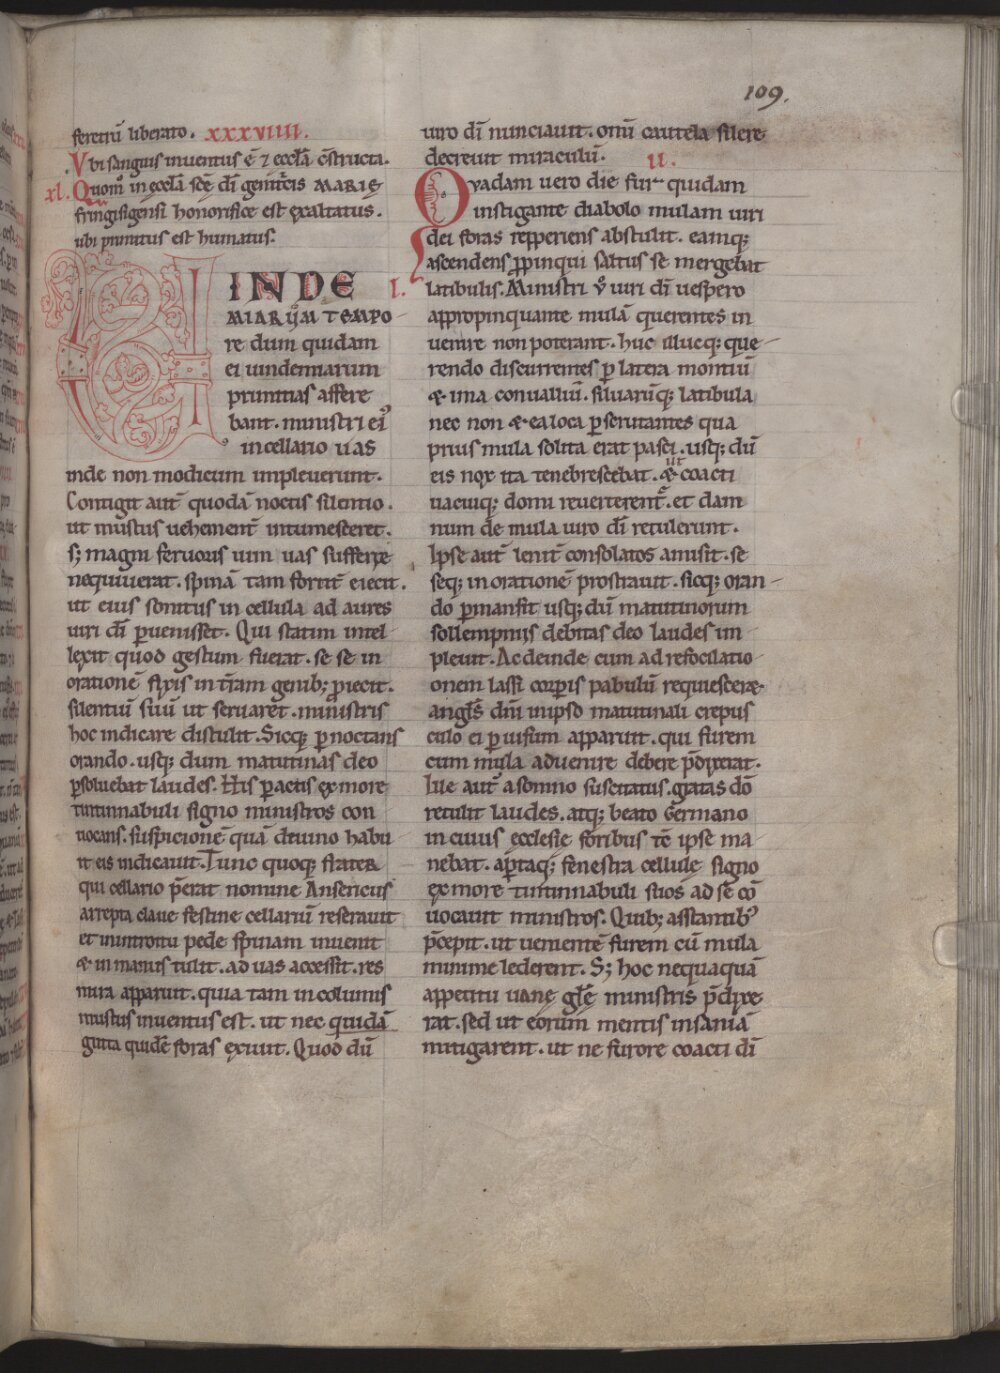 109.
feretrū liberato. xxxviiii.
Vbi sanguis inuentus ē ⁊ eccl̄a c̄structa.
xl. Quom̊ in ęccl̄a scē dī genitͥcis MARIĘ
fringisigensi honorifice est exaltatus.
ubi primitus est humatus.
VINDE I.
MIARUM TEMPO
re dum quidam
ei uindemiarum
primitias affere
bant. ministri eī
in cellario uas
inde non modicum impleuerunt.
Contigit aut̄ quodā noctis silentio.
ut mustus uehement̄ intumesceret.
s; magni feruoris uim uas sufferre
nequiuerat. spinā tam fortit̄ eiecit.
ut eius sonitus in cellula ad aures
uiri dī ꝑuenisset. Qui statim intel
lexit quod gestum fuerat. se se in
orationē fixis in t̄ram genib; ꝓiecit.
silentiū suū ut seruaret. ministris
hoc indicare distulit. Sicq; ꝑnoctans
orando. usq; dum matutinas deo
ꝑsoluebat laudes. His ꝑactis ex more
tintinnabuli signo ministros con
uocans. suspicionē quā diuino habu
it eis indicauit. Tunc quoq; frater
qui cellario p̄erat nomine Ansericus
arrepta claue festine cellariū reserauit
et in introitu pede spinam inuenit
& in manus tulit. ad uas accessit. res
mira apparuit. quia tam incolumis
mustus inuentus est. ut nec quidā
gutta quidē foras exiuit. Quod dū
uiro dī nunciauit. omī cautela silere
decreuit miraculū. II.
Qvadam uero die fur quidam
instigante diabolo mulam uiri
dei foras repperiens abstulit. eamq;
ascendens ꝓpinqui saltus se mergebat
latibulis. Ministri v̊ uiri dī uespero
appropinquante mulā querentes in
uenire non poterant. huc illucq; que
rendo discurrentes ꝑ latera montiū
& ima conualliū. siluarūq; latibula
nec non & ea loca ꝑscrutantes qua
prius mula solita erat pasci. usq; dū
eis nox ita tenebrescebat. ut & coacti
uacuiq; domū reuerterent̄. et dam
num de mula uiro dī retulerunt.
Ipse aut̄ lenit̄ consolatos amisit. se
seq; in orationē prostrauit. sicq; oran
do ꝑmansit usq; dū matutinorum
sollempniis debitas deo laudes im
pleuit. Ac deinde cum ad refocilatio
onem lassi corꝑis pabulū requiesceret
angl̄s dn̄i in ipso matutinali crepus
culo ei ꝑ uisum apparuit. qui furem
cum mula aduenire debere p̄dixerat.
Iue aut̄ a somno suscitatus. gratas dō
retulit laudes. atq; beato Germano
in cuius ecclesie foribus tē ipse ma
nebat. aꝑtaq; fenestra cellulę signo
ex more tintinnabuli suos ad sē cō
uocauit ministros. Quib; asstantib;
p̄cepit. ut uenientē furem cū mula
minime lederent. S; hoc nequaquā
appetitu uanę gl̄ę ministris p̄dixe
rat. sed ut eorum mentis insaniā
mitigarent. ut ne furore coacti dī